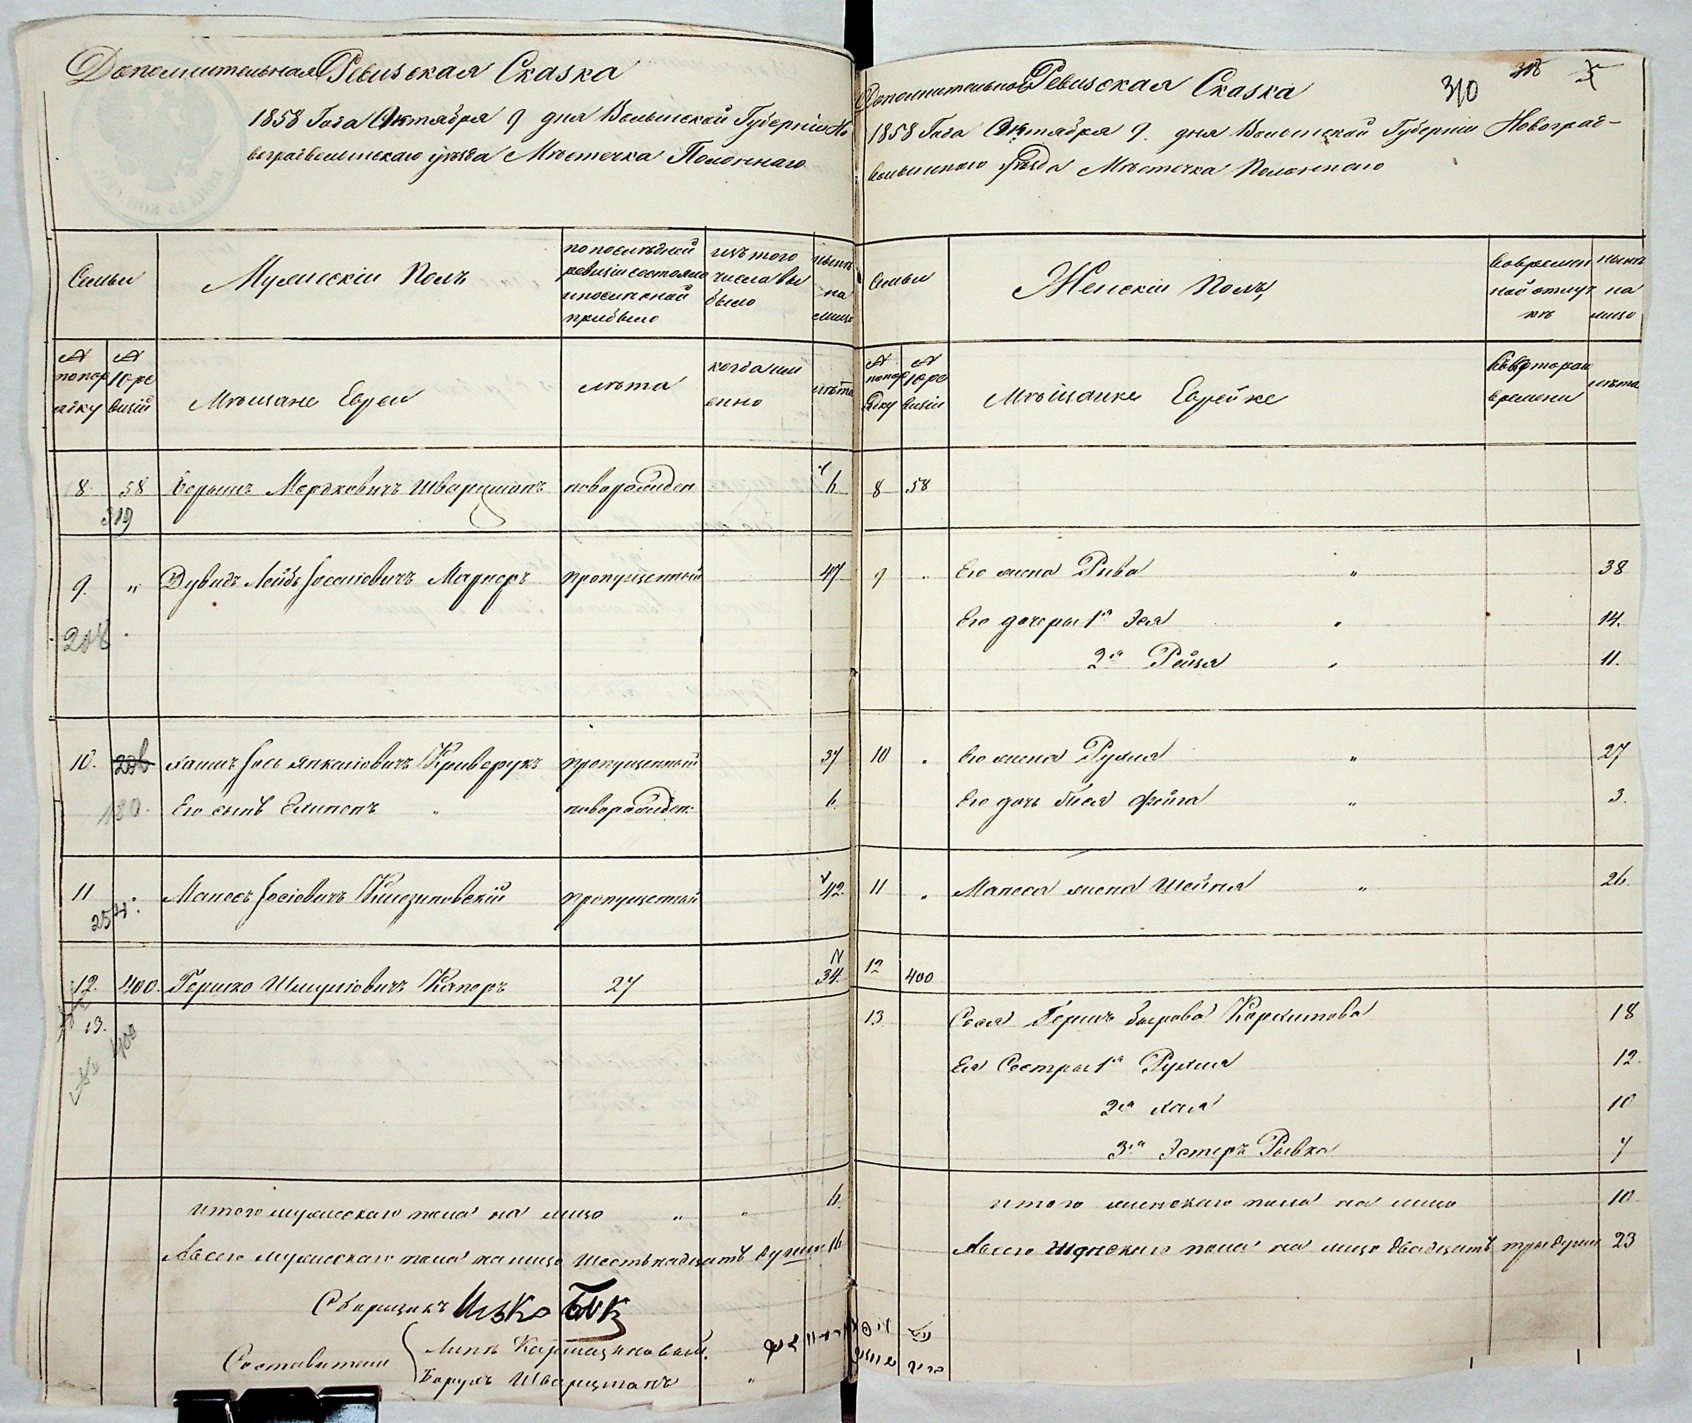 Дополнительная Ревизская Сказка
1858 Года Октября 9 дня Волынской Губерніи Но
воградволынскаго уѣзда Мѣстечка Полоннаго
Семьи
Мужескій Полъ
по послѣдней
ревизіи состояло
и послѣ оной
прибыло
изъ того
числа вы
было
нынѣ
на
лицо
№
попор
ядку
№
10 ре
визіи
Мѣщане Евреи
лѣта
когда им
енно
лѣта
8. 58 Берышъ Мордковичъ Шварцманъ новорожден 6
319
9. " Дувидъ Лейбъ Іоселіовичъ Маднеръ пропущенный 47
204
10. Хаимъ Іось Янкеліовичъ Криверукъ пропущенный 37
180. Его сынъ Елипенъ " новорожден. 6
11 Манесъ Іосіовичъ пропущенный 42.
254.
12. 400. Гершко ШмуліовичъКанеръ 27 34.
13.
400
итого мужескаго пола на лицо " " 6.
Авсего мужескаго пола на лицо шестьнадцать душъ 16
Сборщикъ
Составители
Борухъ Шварцманъ "
Дополнительная Ревизская Сказка
310
1858 Года Октября 9. дня Волынской Губерніи Новоград-
волынскаго Уѣзда Мѣстечка Полоннаго
Семьи
Женскій Полъ,
вовремен
ной отлуч
кѣ
нынѣ
на
лицо
№
попор
ядку
№
10 ре
визіи
Мѣщанке Еврейке
съкотораго
времени
лѣта
8 58
9 " Его жена Рива " 38
Его дочеры 1я Эся " 14.
2я Рейзя " 11.
10 " Его жена Рухля " 27
Его дочь Бися Фейга " 3.
11 " Манеса жена Шейндля " 26.
12 400
13 Сося Гершъ Берова 18
Ея Сестры 1я Рухля 12.
2я Хая 10
3я Эстеръ Рывка 7
итого женскаго пола на лицо 10.
Авсего Женскаго пола на лицо двадцать три души 23